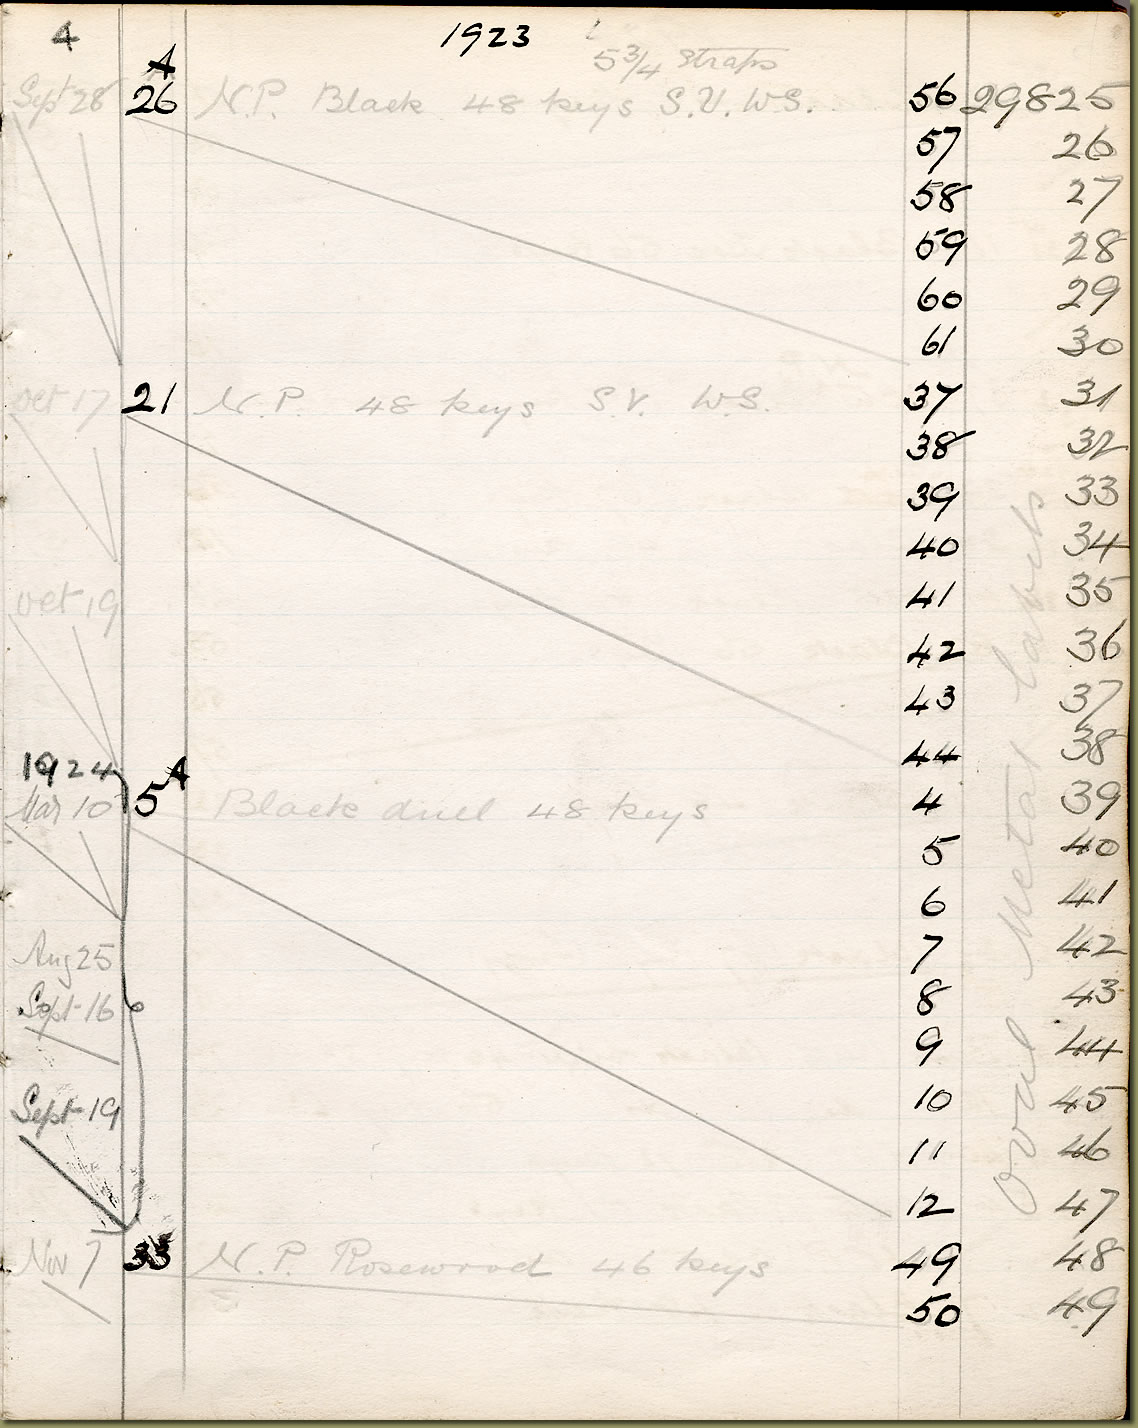 4 1923
5 3/4 Straps
A
Sept 28 26 N.P. Black 48 keys S.V. W.S. 56 29825
57 26
58 27
59 28
60 29
61 30
Oct 17 21 N.P. 48 keys S.V. W.S. 37 31
38 32
39 33
40 34
41 35
Oct 19
42 36
43 37
44 38
1924 A
Mar 10 5 Black duel 48 keys 4 39
5 40
6 41
7 42
Aug 25
Sept 16 8 43
9 44
Sept 19 10 45
11 46
12 47
Nov 7 33 N.P. Rosewood 46 keys 49 48
50 49
Oval Metal labels